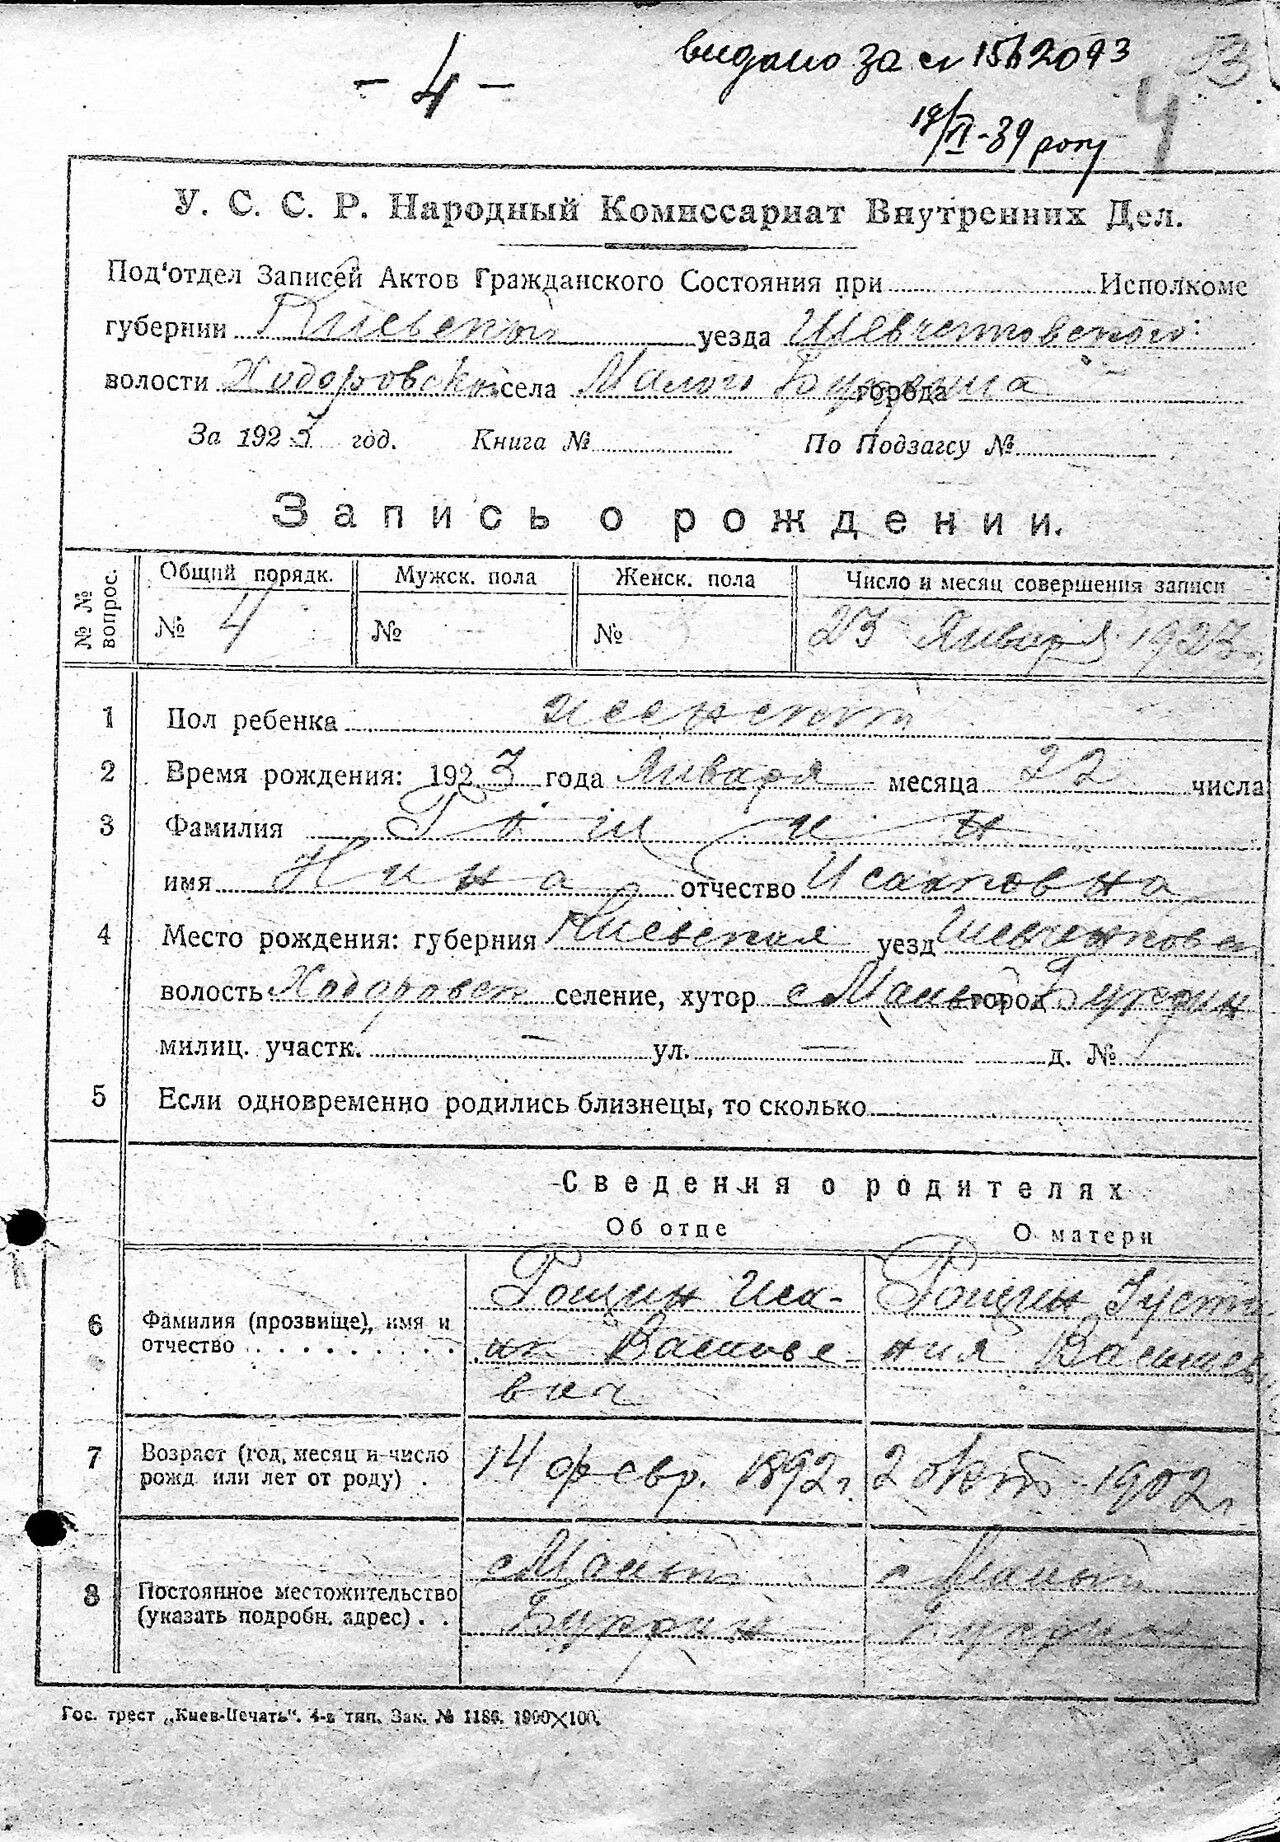 - 4 -
видано за № 1562093
4
У. С. С. Р. Народный Комиссариат Внутренних Дел.
Под'отдел Записей Актов Гражданского Состояния при Исполкоме
губернии Киевской уезда Шевченковского
волости Ходоровской села Малого Букрина города
За 1923 год. Книга № По Подзагсу №
Запись о рождении.
№ № вопрос.
Общий порядк. Мужск. пола Женск. пола Число и месяц совершения записи
№ 4 № № 23 Января 1923 г.
1 Пол ребенка женский
2 Время рождения: 1923 года Января месяца 22 числа
3 Фамилия Гощин
имя Нина отчество Исааковна
4 Место рождения: губерния Киевская уезд Шевченковск
волость Ходоровск селение, хутор с Малый город Букрин
милиц. участк. — ул. — д. №
5 Если одновременно родились близнецы, то сколько
Сведения о родителях
Об отце О матери
6 Фамилия (прозвище), имя и отчество
Гощин Иса-
ак Васильевич
Гощин Густи
ния Васильев
7 Возраст (год, месяц и число рожд. или лет от роду)
14 февр. 1892 г. 2 окт 1902 г.
8 Постоянное местожительство (указать подробн. адрес)
с Малый
Букрин
с Малый
Букрин
Гос. трест „Киев-Печать". 4-я тип. Зак. № 1186. 1900×100.